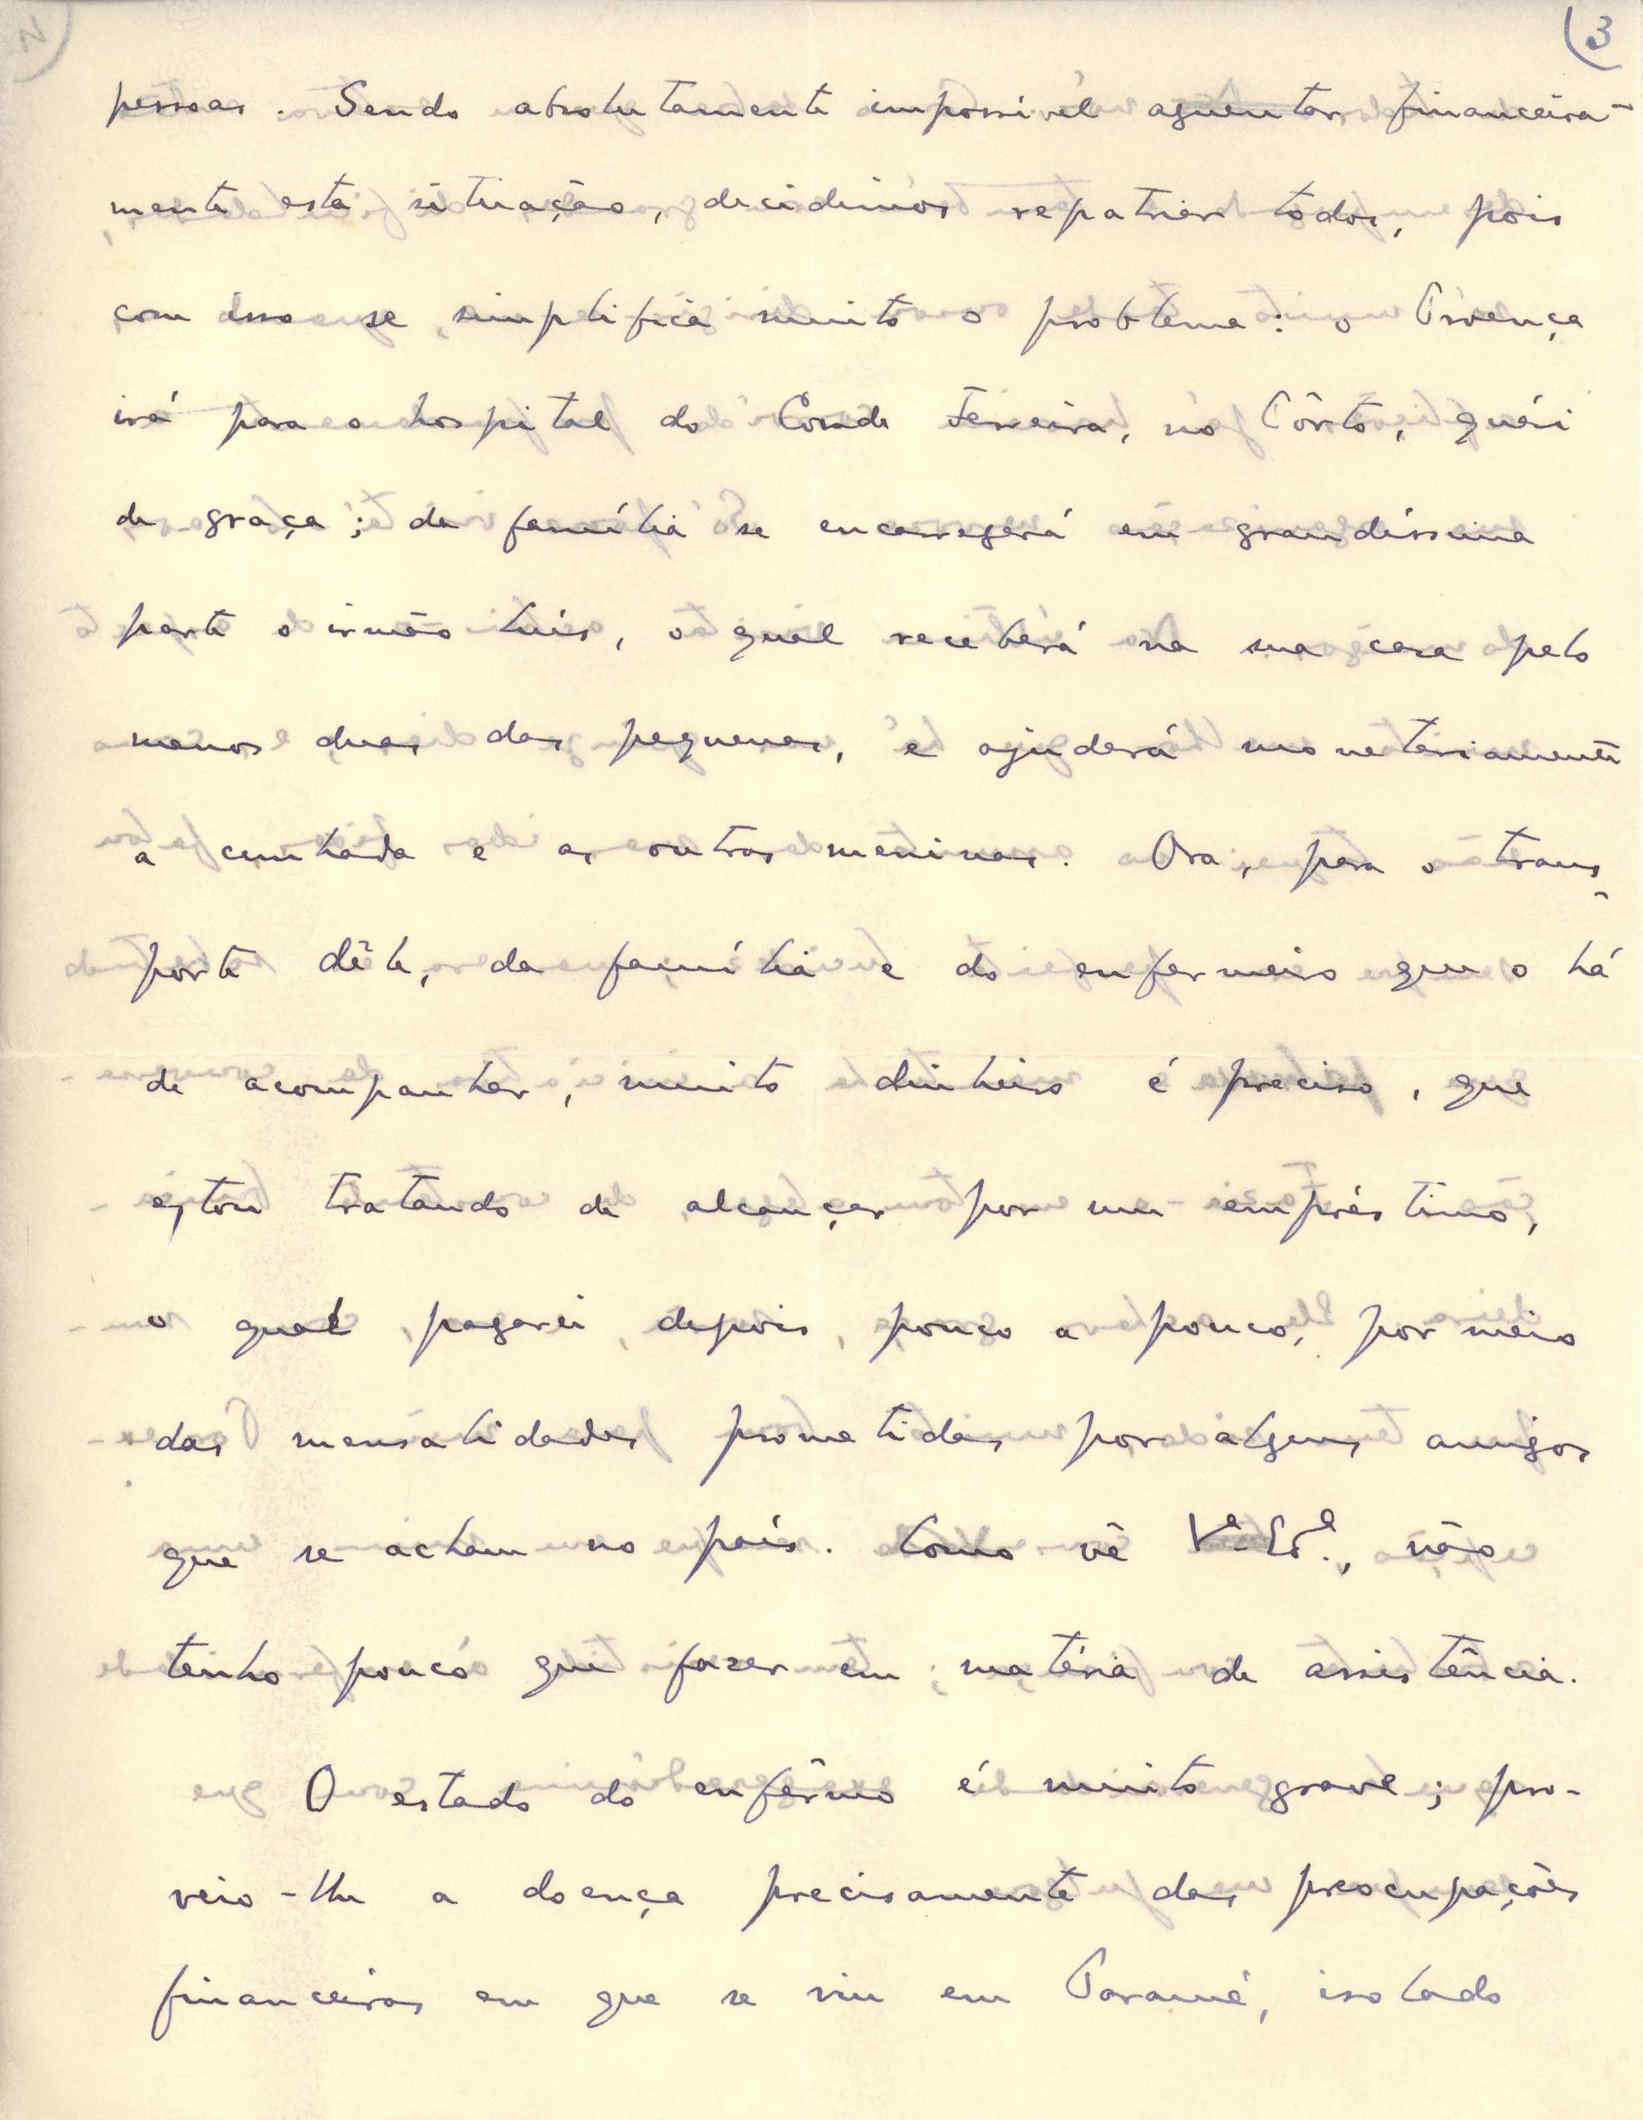 (3
pessoas. Sendo absolutamente impossível aguentar financeira-
mente esta situação, decidimos repatriar todos, pois
com isso se simplifica muito o problema: o Proença
irá para o hospital do Conde Ferreira, no Pôrto, quási
de graça; da família se encarregará em grandíssima
parte o irmão Luís, o qual receberá na sua casa pelo
menos duas das pequenas, e ajudará monetariamente
a cunhada e as outras meninas. Ora, para o trans-
porte dêle, da família e do enfermeiro que o há
de acompanhar, muito dinheiro é preciso, que
estou tratando de alcançar por um empréstimo,
o qual pagarei, depois, pouco a pouco, por meio
das mensalidades prometidas por alguns amigos
que se acham no país. Como vê V.ª Ex.ª, não
tenho pouco que fazer em matéria de assistência.
O estado do enfêrmo é muito grave; pro-
veio-lhe a doença precisamente das preocupações
financeiras em que se viu em Paramé, isolado